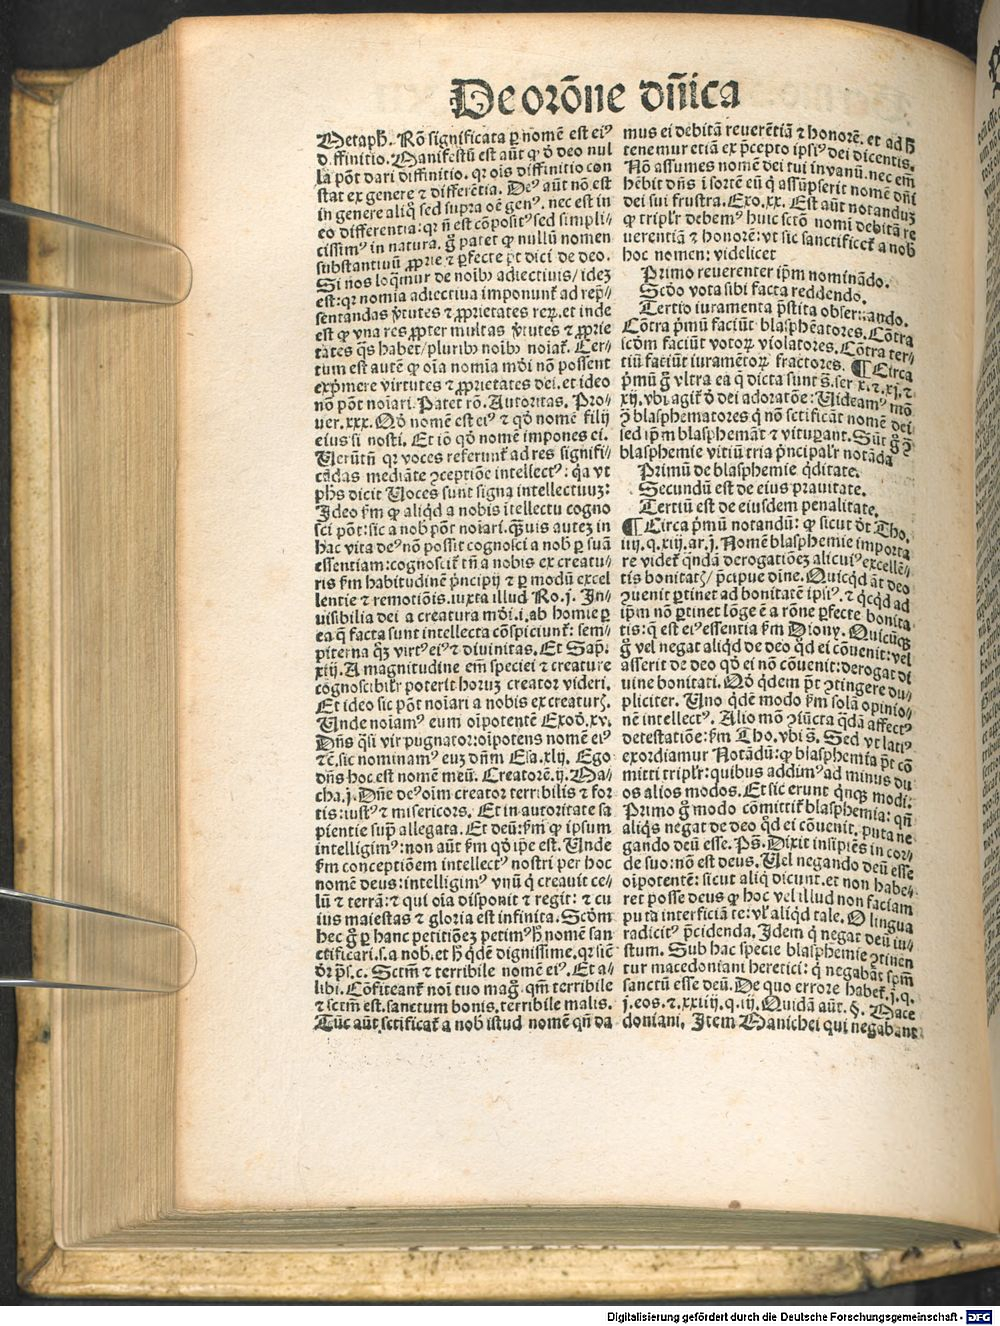 De orōne dn̄ica
Metaph̄. Rō significata ꝑ nomē est eiꝰ
diffinitio. Manifestū est aūt ꝙ ō deo nul
la pōt dari diffinitio. qꝛ oīs diffinitio con
stat ex genere ⁊ differētia. Deꝰ aūt nō est
in genere aliq̄ sed supra oē genꝰ. nec est in
eo differentia: qꝛ n̄ est cōpositꝰ sed simpli⸗
cissimꝰ in natura. g̊ patet ꝙ nullū nomen
substantiuū ꝓprie ⁊ ꝑfecte pt dici de deo.
Si nos loq̄mur de noībꝰ adiectiuis/ idez
est: qꝛ nomīa adiectiua imponunt̄ ad rep̄⸗
sentandas v̄tutes ⁊ ꝓprietates reꝝ. et inde
est ꝙ vna res ꝓpter multas v̄tutes ⁊ ꝓprie
tates q̄s habet/ pluribꝰ noībꝰ noīat̄. Cer⸗
tum est autē ꝙ oīa nomīa mōi nō possent
exp̄mere virtutes ⁊ ꝓprietates dei. et ideo
nō pōt noīari. Patet rō. Autoritas. Pro⸗
uer. xxx. Qō nomē est eiꝰ ⁊ qō nomē filij
eius si nosti. Et iō qō nomē impones ei.
Uerūtn̄ qꝛ voces referunt̄ ad res signifi⸗
cādas mediāte ꝯceptiōe intellectꝰ: q̄a vt
ph̄s dicit Uoces sunt signa intellectuuz:
Ideo ẜm ꝙ aliqd̄ a nobis ītellectu cogno
sci pōt: sic a nob̄ pōt noīari. Q̄uis autez in
hac vita deꝰ nō possit cognosci a nob̄ ꝑ suā
essentiam: cognoscit̄ tn̄ a nobis ex creatu⸗
ris ẜm habitudinē p̄ncipij ⁊ ꝑ modū excel
lentie ⁊ remotiōis. iuxta illud Ro. j. In⸗
uisibilia dei a creatura mōi. i. ab homīe ꝑ
ea q̄ facta sunt intellecta cōspiciunt̄: sem⸗
piterna qz virtꝰ eiꝰ ⁊ diuinitas. Et Sap.
xiij. A magnitudine em̄ speciei ⁊ creature
cognoscibilr̄ poterit horuz creator videri.
Et ideo sic pōt noīari a nobis ex creaturꝭ.
Unde noīamꝰ eum oīpotentē Exoō. xv.
Dn̄s q̄si vir pugnator: oīpotens nomē eiꝰ
⁊c̄. sic nominamꝰ euz dn̄m Esa. xlij. Ego
dn̄s hoc est nomē meū. Creatorē. ij. Ma⸗
cha. j. Dn̄e deꝰ oīm creator terribilis ⁊ for
tis: iustꝰ ⁊ misericors. Et in autoritate sa
pientie sup̄ allegata. Et deū: ẜm ꝙ ipsum
intelligimꝰ: non aūt ẜm qō ip̄e est. Unde
ẜm conceptiōem intellectꝰ nostri per hoc
nomē deus: intelligimꝰ vnū q̄ creauit ce⸗
lū ⁊ terrā: ⁊ qui oīa disponit ⁊ regit: ⁊ cu
ius maiestas ⁊ gloria est infinita. Scōm
hec g̊ ꝑ hanc petitiōez petimꝰ h̄ nomē san
ctificari. s. a nob̄. et h̄ qdē dignissime. qꝛ sic̄
dr̄ ps̄. c. Sctm̄ ⁊ terribile nomē eiꝰ. Et a⸗
libi. Cōfiteant̄ noī tuo mag̊. qm̄ terribile
⁊ sctm̄ est. sanctum bonis. terribile malis.
Tūc aūt sctificat̄ a nob istud nomē qn̄ da
mus ei debitā reuerētiā ⁊ honorē. et ad h̄
tenemur etiā ex p̄cepto ipsiꝰ dei dicentis.
Nō assumes nomē dei tui invanū. nec em̄
hēbit dn̄s īsortē eū q̄ assūpserit nomē dn̄i
dei sui frustra. Exo. xx. Est aūt notanduz
ꝙ triplr̄ debemꝰ huic sctō nomī debitā re
uerentiā ⁊ honorē: vt sic sanctificet̄ a nob̄
hoc nomen: videlicet
Primo reuerenter ip̄m nominādo.
Scōo vota sibi facta reddendo.
Tertio iuramenta p̄stita obseruando.
Cōtra p̄mū faciūt blasphēatores. Cōtra
icōm faciūt votoꝝ violatores. Cōtra ter⸗
tiū faciūt iuramētoꝝ fractores. ¶ Circa
p̄mū g̊ vltra ea q̄ dicta sunt s̄. ser. x. ⁊. xj. ⁊
xij. vbi agit̄ ō dei adoratōe: Uideamꝰ mō
ꝯ blasphematores q̄ nō sctificāt nomē dei
sed ip̄m blasphemāt ⁊ vituꝑant. Sūt g̊ ꝯ
blasphemie vitiū tria p̄ncipalr̄ notāda
Primū de blasphemie qditate.
Secundū est de eius prauitate.
Tertiū est de eiusdem penalitate.
¶ Circa p̄mū notandū: ꝙ sicut ōt Tho.
iiij. q. xiij. ar. j. Nomē blasphemie importa
re videt̄ qndā derogatiōez alicuiꝰ excellē⸗
tis bonitatꝭ/ p̄cipue dīne. Quicqd āt deo
ꝯuenit ꝑtinet ad bonitatē ipsiꝰ. ⁊ qcqd ad
ip̄m nō ꝑtinet lōge ē a rōne ꝑfecte bonita
tis: q̄ est eiꝰ essentia ẜm Diony. Quicūqꝫ
g̊ vel negat aliqd de deo qd ei cōuenit: vel
asserit de deo qō ei nō cōuenit: derogat di
uine bonitati. Qō qdem p̄t ꝯtingere du⸗
pliciter. Uno qdē modo ẜm solā opinio⸗
nē intellectꝰ. Alio mō ꝯiūcta qdā affectꝰ
detestatiōe: ẜm Tho. vbi s̄. Sed vt latiꝰ
exordiamur Notādū: ꝙ blasphemia p̄t cō
mitti triplr̄: quibus addimꝰ ad minus du
os alios modos. Et sic erunt qnqꝫ modi.
Primo g̊ modo cōmittit̄ blasphemia: qn̄
aliqs negat de deo qd ei cōuenit. puta ne
gando deū esse. Ps̄. Dixit insipiēs in cor⸗
de suo: nō est deus. Uel negando deū esse
oīpotentē: sicut aliq̄ dicunt. et non habe⸗
ret posse deus ꝙ hoc vel illud non faciam
puta interficiā te: vl̄ aliqd tale. O lingua
radicitꝰ p̄cidenda. Idem q̄ negat deū iu⸗
stum. Sub hac specie blasphemie ꝯtinen
tur macedoniani heretici: q̄ negabāt sp̄m
sanctū esse deū. De quo errore habet̄. j. q.
j. eos. ⁊. xxiiij. q. iij. Quidā aūt. §. Mace
doniani. Item Manichei qui negabant
Digitalisierung gefördert durch die Deutsche Forschungsgemeinschaft - DFG